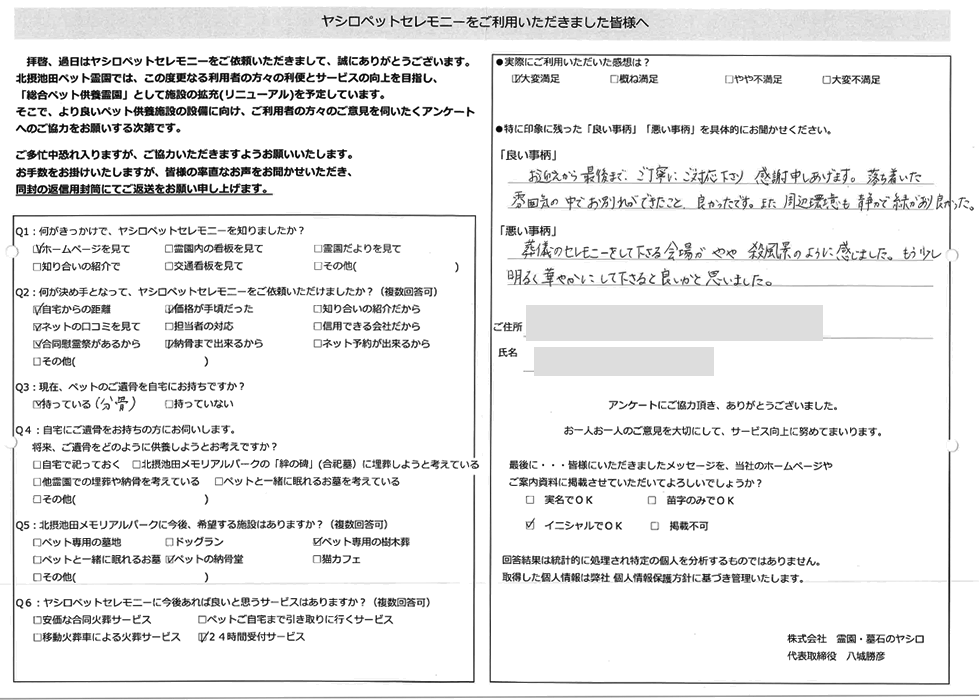 ヤシロペットセレモニーをご利用いただきました皆様へ
拝啓、過日はヤシロペットセレモニーをご依頼いただきまして、誠にありがとうございます。
北摂池田ペット霊園では、この度更なる利用者の方々の利便とサービスの向上を目指し、
「総合ペット供養霊園」として施設の拡充(リニューアル)を予定しています。
そこで、より良いペット供養施設の設備に向け、ご利用者の方々のご意見を伺いたくアンケート
へのご協力をお願いする次第です。
ご多忙中恐れ入りますが、ご協力いただきますようお願いいたします。
お手数をお掛けいたしますが、皆様の率直なお声をお聞かせいただき、
同封の返信用封筒にてご返送をお願い申し上げます。
Q1：何がきっかけで、ヤシロペットセレモニーを知りましたか？
☑ホームページを見て □霊園内の看板を見て □霊園だよりを見て
□知り合いの紹介で □交通看板を見て □その他( )
Q2：何が決め手となって、ヤシロペットセレモニーをご依頼いただけましたか？（複数回答可）
☑自宅からの距離 ☑価格が手頃だった □知り合いの紹介だから
☑ネットの口コミを見て □担当者の対応 □信用できる会社だから
☑合同慰霊祭があるから ☑納骨まで出来るから □ネット予約が出来るから
□その他( )
Q3：現在、ペットのご遺骨を自宅にお持ちですか？
☑持っている（分骨） □持っていない
Q４：自宅にご遺骨をお持ちの方にお伺いします。
将来、ご遺骨をどのように供養しようとお考えですか？
□自宅で祀っておく □北摂池田メモリアルパークの「絆の碑」(合祀墓）に埋葬しようと考えている
□他霊園での埋葬や納骨を考えている □ペットと一緒に眠れるお墓を考えている
□その他( )
Q5：北摂池田メモリアルパークに今後、希望する施設はありますか？（複数回答可）
□ペット専用の墓地 □ドッグラン ☑ペット専用の樹木葬
□ペットと一緒に眠れるお墓 ☑ペットの納骨堂 □猫カフェ
□その他( )
Q６：ヤシロペットセレモニーに今後あれば良いと思うサービスはありますか？（複数回答可）
□安価な合同火葬サービス □ペットご自宅まで引き取りに行くサービス
□移動火葬車による火葬サービス ☑２４時間受付サービス
●実際にご利用いただいた感想は？
☑大変満足 □概ね満足 □やや不満足 □大変不満足
●特に印象に残った「良い事柄」「悪い事柄」を具体的にお聞かせください。
「良い事柄」
お迎えから最後まで、ご丁寧にご対応下さり 感謝申しあげます。落ち着いた
雰囲気の中でお別れができたこと、良かったです。また 周辺環境も静かで緑があり良かった。
「悪い事柄」
葬儀のセレモニーをして下さる会場が やや 殺風景のように感じました。もう少し
明るく華やかにして下さると良いかと思いました。
ご住所
氏名
アンケートにご協力頂き、ありがとうございました。
お一人お一人のご意見を大切にして、サービス向上に努めてまいります。
最後に・・・皆様にいただきましたメッセージを、当社のホームページや
ご案内資料に掲載させていただいてよろしいでしょうか？
□ 実名でＯＫ □ 苗字のみでＯＫ
☑ イニシャルでＯＫ □ 掲載不可
回答結果は統計的に処理され特定の個人を分析するものではありません。
取得した個人情報は弊社 個人情報保護方針に基づき管理いたします。
株式会社 霊園・墓石のヤシロ
代表取締役 八城勝彦